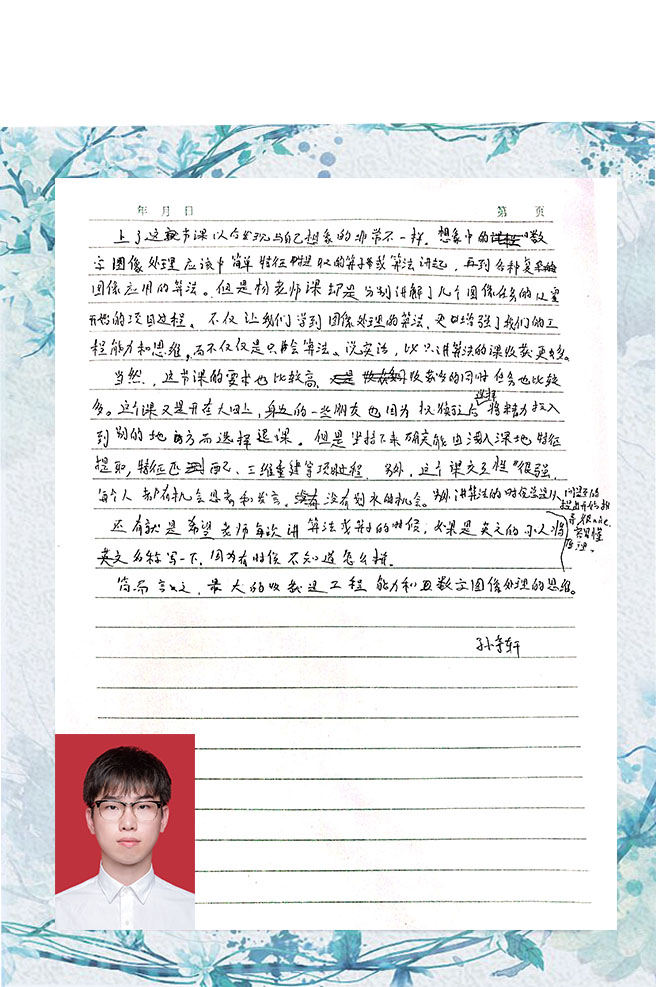 年 月 日
第 页
上了这节课以后发现与自己想象的非常不一样。想象中的数
字图像处理应该由简单特征提取的算子或算法讲起，再到各种
图像应用的算法。但是杨老师课却是分别讲解了几个图像任务的从零
开始的项目过程。不仅让我们学到图像处理的算法，更增强了我们的工
程能力和思维，而不仅仅是只会算法。说实话，比只讲算法的课收获更多。
当然，这节课的要求也比较高，收获多的同时任务也比较
多。这个课又是开在大四上，身边的一些朋友也因为选择将精力投入
到别的地方而选择退课。但是坚持下来确实能由浅入深地特征
提取，特征匹配、三维重建等项目过程。另外，这个课交互性很强，
每个人都有机会思考和发言，没有划水的机会。另外讲算法的时候总是从
问题的提出开始推导
还有就是希望老师每次讲算法或算子的时候，如果是英文的可以将
英文名称写一下，因为有时候不知道怎么拼。
简而言之，最大的收获是工程能力和数字图像处理的思维。